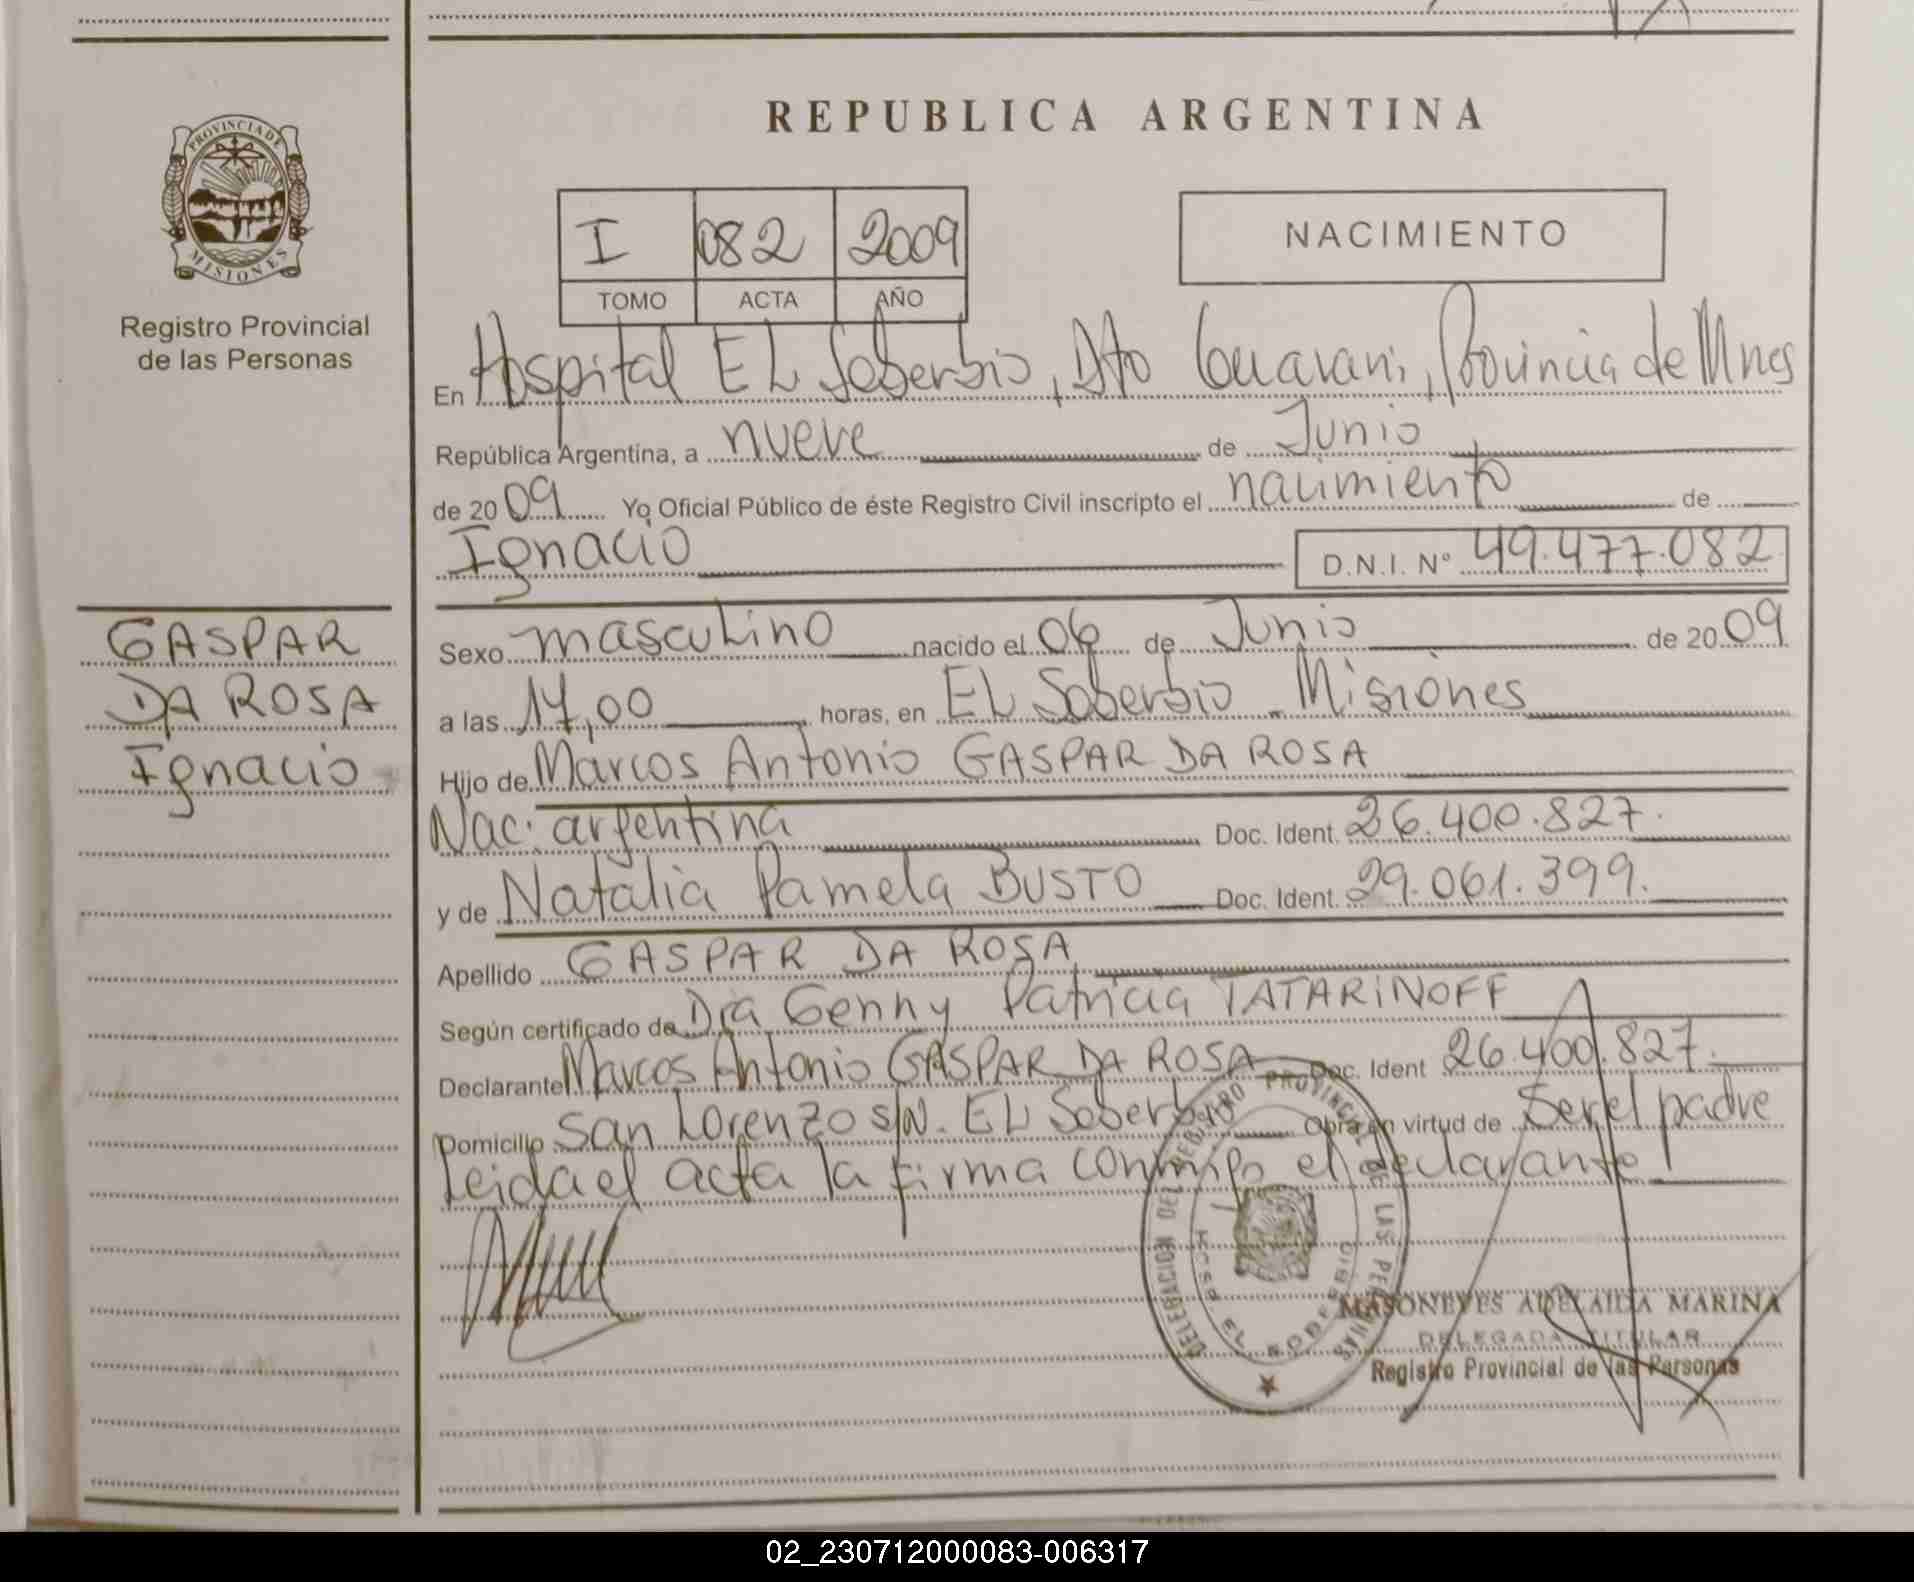 REPUBLICA ARGENTINA
PROVINCIA DE
MISIONES
Registro Provincial
de las Personas
I 082 2009
TOMO ACTA AÑO
NACIMIENTO
En Hospital EL Soberbio, Dto Guarani, Provincia de Mnes
República Argentina, a nueve de Junio
de 2009 Yo Oficial Público de éste Registro Civil inscripto el nacimiento de
Ignacio D.N.I. Nº 49.477.082
GASPAR
DA ROSA
Ignacio
Sexo masculino nacido el 06 de Junio de 2009
a las 14,00 horas, en EL Soberbio - Misiones
Hijo de Marcos Antonio GASPAR DA ROSA
Nac: argentina Doc. Ident. 26.400.827.
y de Natalia Pamela BUSTO Doc. Ident. 29.061.399.
Apellido GASPAR DA ROSA
Según certificado de Dra Genny Patricia TATARINOFF
Declarante Marcos Antonio GASPAR DA ROSA Doc. Ident 26.400.827.
Domicilio San Lorenzo s/N. EL Soberbio Obra en virtud de Ser el padre
Leida el acta la firma conmigo el declarante
DELEGACION DEL REGISTRO PROVINCIAL DE LAS PERSONAS
HOSP. EL SOBERBIO
MASONEVES ADELAIDA MARINA
DELEGADA TITULAR
Registro Provincial de las Personas
02_230712000083-006317